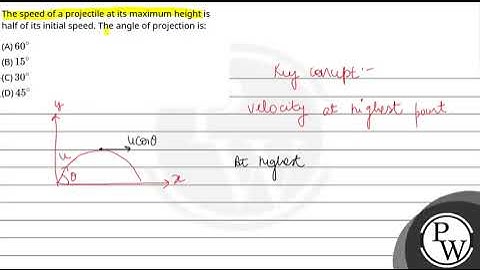 The speed of a projectile at its maximum height is
half of its initial speed. The angle of projection is:
(A) 60°
(B) 15°
(C) 30°
(D) 45°
Key concept:-
velocity at highest point
At highest
y
u
θ
ucosθ
x
PW
PW